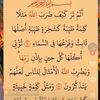 أَلَمْ تَرَ كَيْفَ ضَرَبَ اللَّهُ مَثَلًا
كَلِمَةً طَيِّبَةً كَشَجَرَةٍ طَيِّبَةٍ أَصْلُهَا
ثَابِتٌ وَفَرْعُهَا فِي السَّمَاءِ تُؤْتِي
أُكُلَهَا كُلَّ حِينٍ بِإِذْنِ رَبِّهَا
وَيَضْرِبُ اللَّهُ الْأَمْثَالَ لِلنَّاسِ لَعَلَّهُمْ
يَتَذَكَّرُونَ وَمَثَلُ كَلِمَةٍ خَبِيثَةٍ